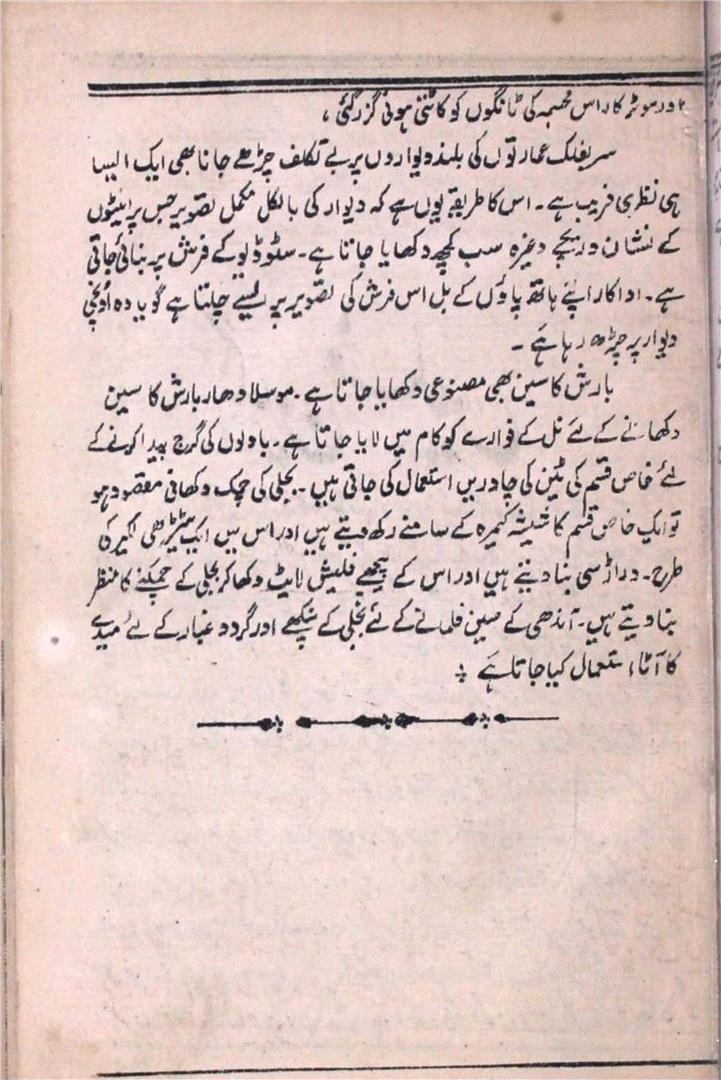 اور موٹر کار اس مجسمہ کی ٹانگوں کو کاٹتی ہوئی گزر گئی ،
سربفلک عمارتوں کی بلند دیواروں پر بے تکلف چڑھے جانا بھی ایک ایسا
ہی نظری فریب ہے ۔ اس کا طریقہ یوں ہے کہ دیوار کی بالکل مکمل تصویر جس پر اینٹوں
کے نشان دریچے وغیرہ سب کچھ دکھایا جاتا ہے ۔ سٹوڈیو کے فرش پر بنائی جاتی
ہے ۔ اداکار اپنے ہاتھ پاؤں کے بل اس فرش کی تصویر پر ایسے چلتا ہے گویا وہ اونچی
دیوار پر چڑھ رہا ہے ۔
بارش کا سین بھی مصنوعی دکھایا جاتا ہے ۔ موسلا دھار بارش کا سین
دکھانے کے لئے نل کے فوارے کو کام میں لایا جاتا ہے ۔ بادلوں کی گرج پیدا کرنے کے
لئے خاص قسم کی ٹین کی چادریں استعمال کی جاتی ہیں ۔ بجلی کی چمک دکھانی مقصود ہو
تو ایک خاص قسم کا شیشہ کیمرہ کے سامنے رکھ دیتے ہیں اور اس میں ایک ٹیڑھی لکیر کی
طرح ۔ دراڑ سی بنا دیتے ہیں اور اس کے پیچھے فلیش لایٹ دکھا کر بجلی کے چمکنے کا منظر
بنا دیتے ہیں ۔ آندھی کے سین فلمانے کے لئے بجلی کے پنکھے اور گرد و غبار کے لئے میدے
کا آٹا استعمال کیا جاتا ہے ؞